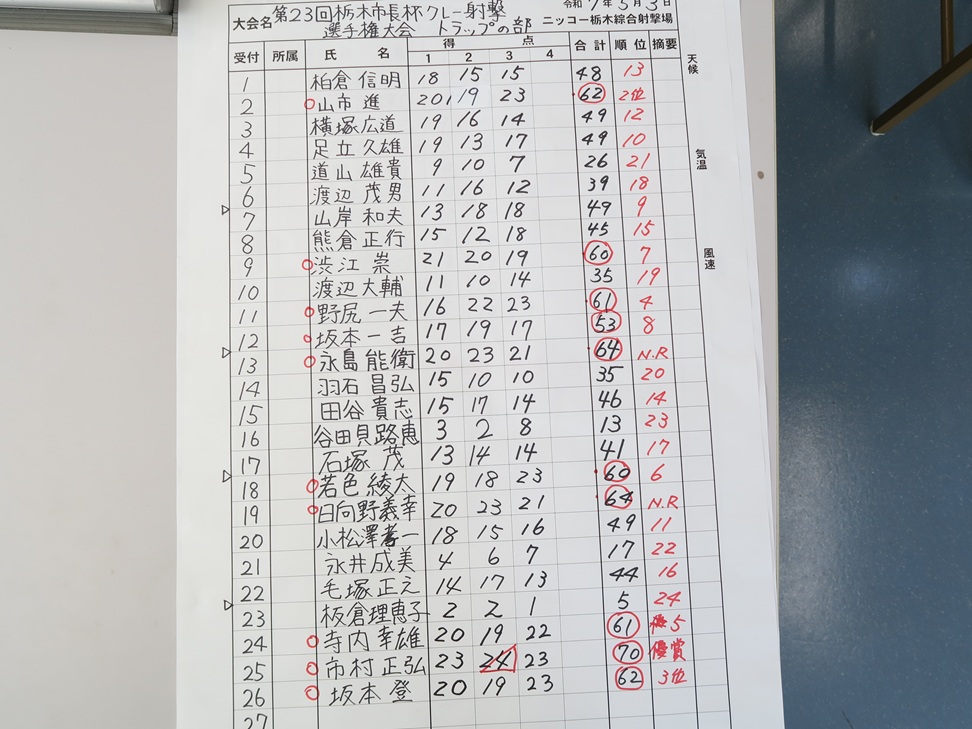 大会名 第23回栃木市長杯クレー射撃 令和7年5月3日
選手権大会 トラップの部 ニッコー栃木綜合射撃場
受付 所属 氏名 得点 合計 順位 摘要
1 2 3 4
天候
気温
風速
1 柏倉 信明 18 15 15 48 13
2 山市 進 20 19 23 62 2位
3 横塚広道 19 16 14 49 12
4 足立 久雄 19 13 17 49 10
5 道山 雄貴 9 10 7 26 21
6 渡辺 茂男 11 16 12 39 18
7 山岸 和夫 13 18 18 49 9
8 熊倉 正行 15 12 18 45 15
9 渋江 崇 21 20 19 60 7
10 渡辺大輔 11 10 14 35 19
11 野尻 一夫 16 22 23 61 4
12 坂本一吉 17 19 17 53 8
13 永島 能衛 20 23 21 64 N.R
14 羽石 昌弘 15 10 10 35 20
15 田谷 貴志 15 17 14 46 14
16 谷田貝路恵 3 2 8 13 23
17 石塚 茂 13 14 14 41 17
18 若色 綾大 19 18 23 60 6
19 日向野義幸 20 23 21 64 N.R
20 小松澤孝一 18 15 16 49 11
21 永井成美 4 6 7 17 22
22 毛塚正之 14 17 13 44 16
23 板倉理恵子 2 2 1 5 24
24 寺内 幸雄 20 19 22 61 5
25 市村 正弘 23 24 23 70 優賞
26 坂本 登 20 19 23 62 3位
27